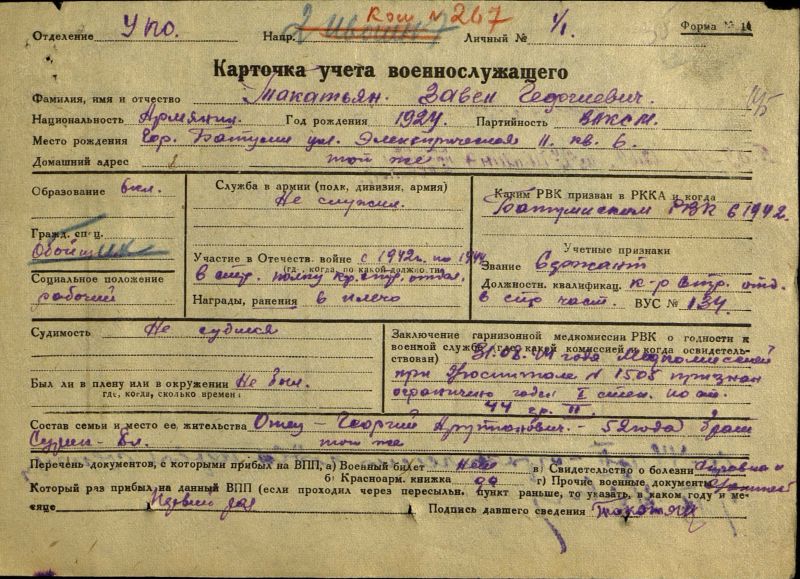 Кош № 267
Отделение УПО. Напр. Личный № 1/1 Форма № 14
Карточка учета военнослужащего
Фамилия, имя и отчество Такатьян Завен Георгиевич.
Национальность Армянин. Год рождения 1924 Партийность ВЛКСМ.
Место рождения Гор. Батуми ул. Электрическая 11. кв. 6.
Домашний адрес той же
Образование 6 кл.
Гражд. сп-ц.
Обойщик
Социальное положение
рабочий
Служба в армии (полк, дивизия, армия)
Не служил.
Участие в Отечеств. войне с 1942г. по 1944
(где, когда, по какой должности)
в стр. полку ком. стр. отдел.
Награды, ранения в плечо
Каким РВК призван в РККА и когда
Батумиским РВК в 1942.
Учетные признаки
Звание Сержант
Должностн. квалификац. к-р стр. отд.
в стр част. ВУС № 134
Судимость Не судился
Был ли в плену или в окружении Не был.
где, когда, сколько времени:
Заключение гарнизонной медкомиссии РВК о годности к
военной службе (где какой комиссией и когда освидетель-
ствован) 31.08.44 года Медкомиссией
при Госпитале № 1505 признан
ограничено годен I степ. по ст.
44 гр. II.
Состав семьи и место ее жительства Отец - Георгий Арутюнович - 52 года брат
Сурен - 6л. той же
Перечень документов, с которыми прибыл на ВПП, а) Военный билет нет в) Свидетельство о болезни Справка и
б) Красноарм. книжка да г) Прочие военные документы
Который раз прибыл на данный ВПП (если проходил через пересыльн. пункт раньше, то указать, в каком году и ме-
сяце Первый раз Подпись давшего сведения Такатян